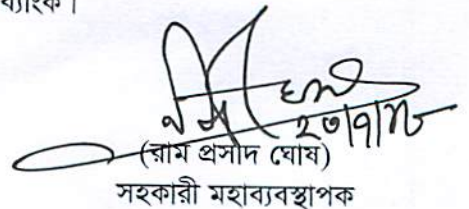 ব্যাংক।
(রাম প্রসাদ ঘোষ)
সহকারী মহাব্যবস্থাপক